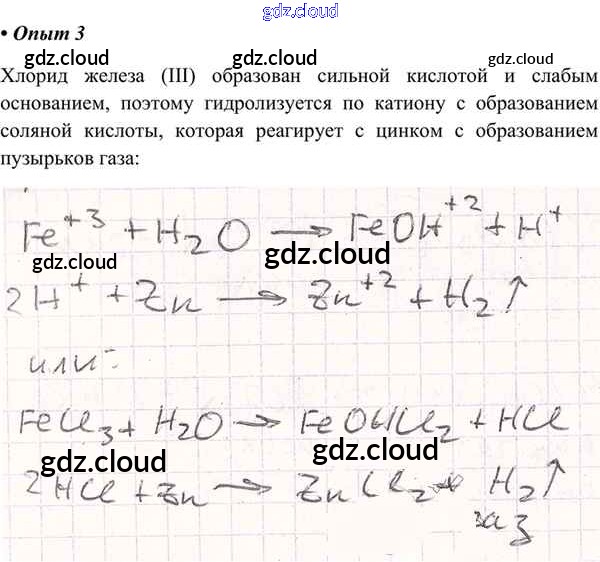 gdz.cloud
• Опыт 3
gdz.cloud gdz.cloud gdz.cloud
Хлорид железа (III) образован сильной кислотой и слабым
основанием, поэтому гидролизуется по катиону с образованием
соляной кислоты, которая реагирует с цинком с образованием
пузырьков газа:
gdz.cloud
gdz.cloud
gdz.cloud
Fe⁺³ + H₂O → FeOH⁺² + H⁺
gdz.cloud gdz.cloud
2H⁺ + Zn → Zn⁺² + H₂↑
или:
gdz.cloud
FeCl₃ + H₂O → FeOHCl₂ + HCl
gdz.cloud gdz.cloud
2HCl + Zn → ZnCl₂ + H₂↑
газ